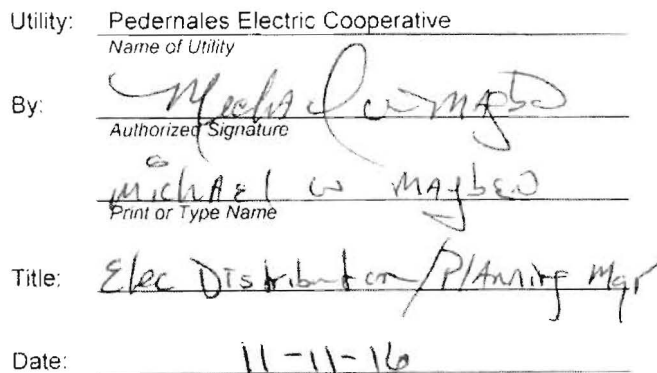 Utility: Pedernales Electric Cooperative
Name of Utility
By: Michael W Mayben
Authorized Signature
MICHAEL W MAYBEN
Print or Type Name
Title: Elec Distribution/Planning Mgr
Date: 11-11-16